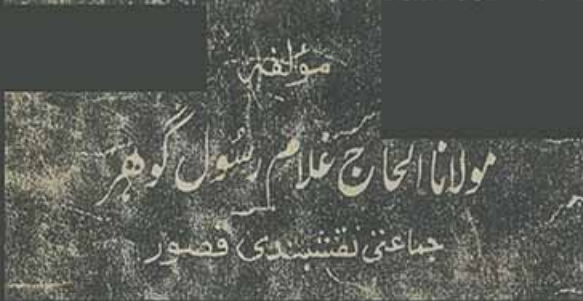 مؤلفہ
مولانا الحاج غلام رسول گوہر
جماعتی نقشبندی قصور